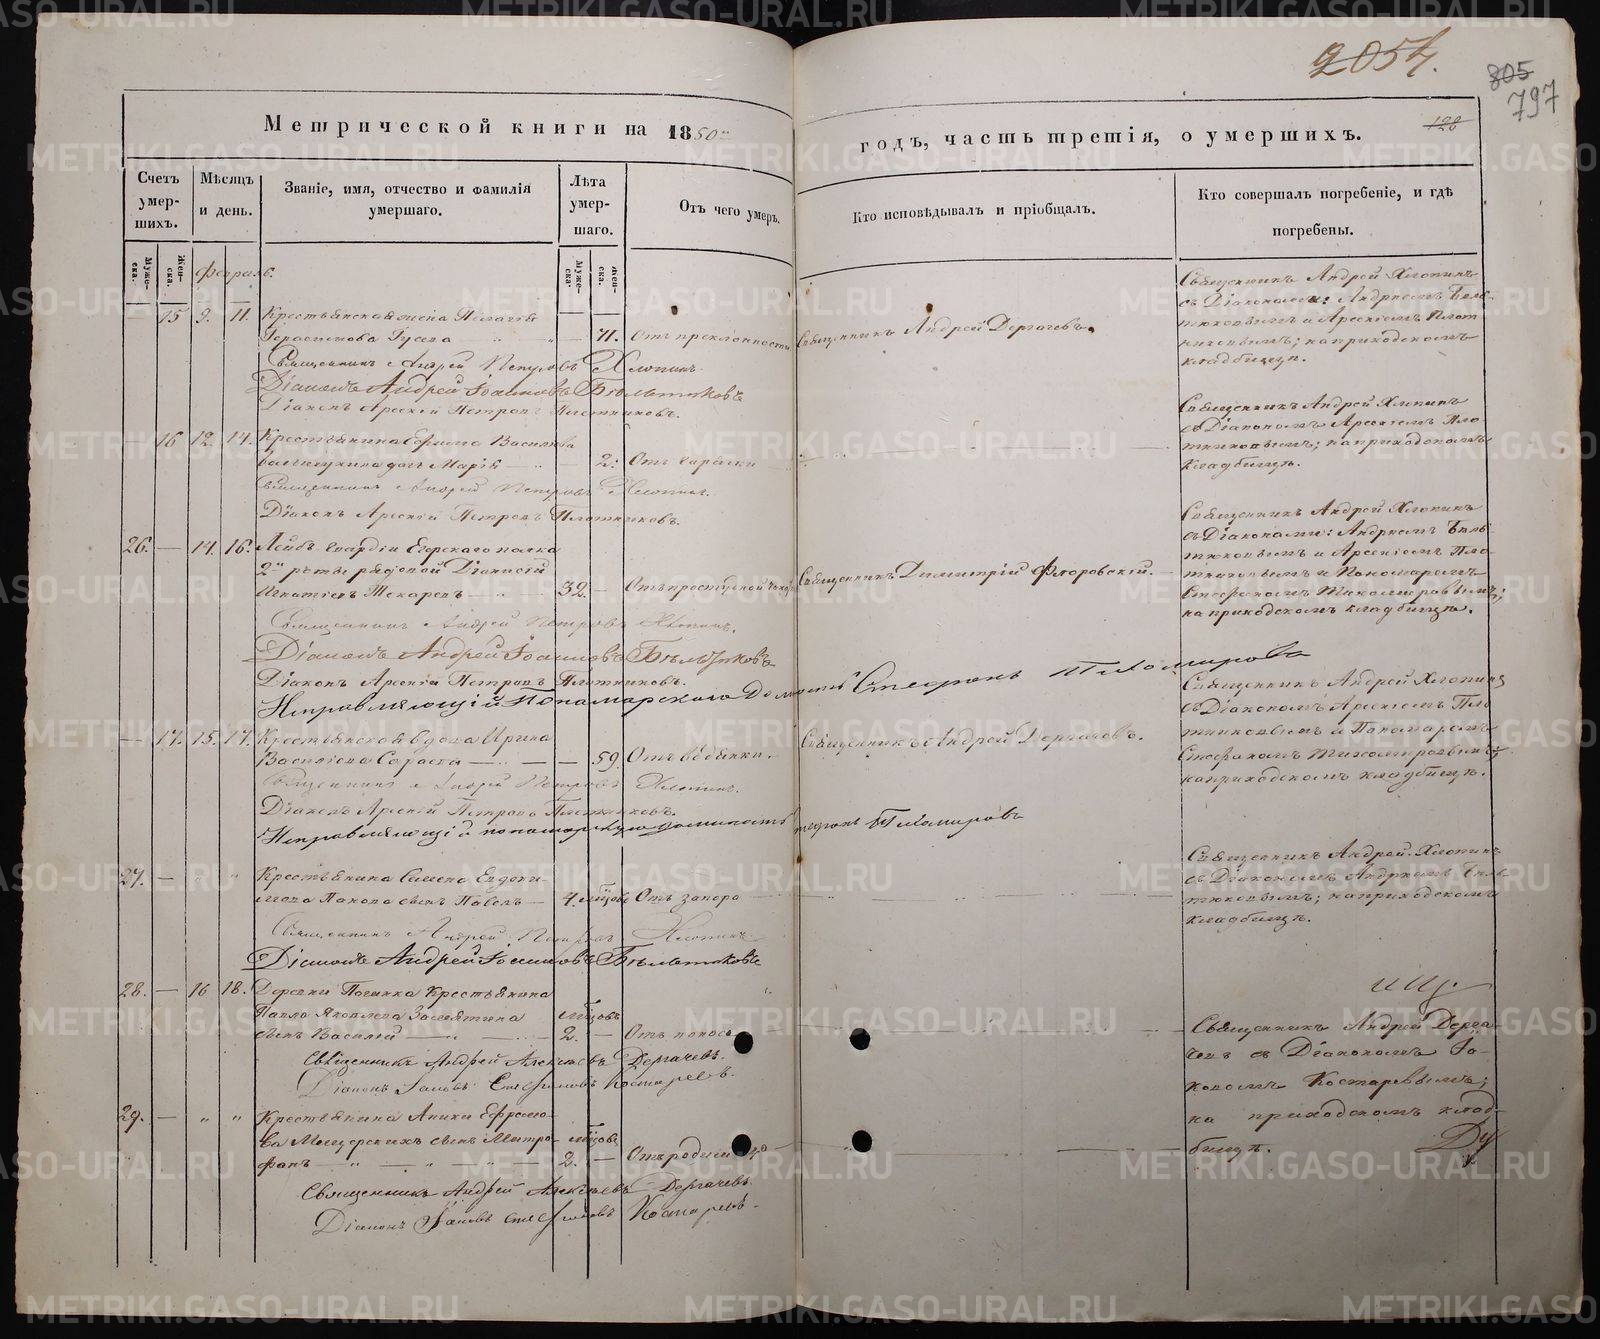 2054.
805
797
128
Метрической книги на 1850й годъ, часть третія, о умершихъ.
Счетъ умер-шихъ.
Мѣсяцъ и день.
Званіе, имя, отчество и фамилія умершаго.
Лѣта умер-шаго.
Отъ чего умеръ.
Кто исповѣдывалъ и пріобщалъ.
Кто совершалъ погребеніе, и гдѣ погребены.
Муже-ска.
Жен-ска.
Муже-ска.
Жен-ска.
Февраль.
— 15 9. 11. Крестьянская жена Пелагія
Герасимова Гусева — 71. Отъ преклонности Священникъ Андрей Дергачевъ.
Священникъ Андрей Хлопинъ
съ Діаконами: Андреемъ Бѣль-
тюковымъ и Арсеніемъ Плот-
никовымъ; на приходскомъ
кладбищѣ.
Священникъ Андрей Петровъ Хлопинъ.
Діаконъ Андрей Іоанновъ Бѣльтюковъ
Діаконъ Арсеній Петровъ Плотниковъ.
— 16 12. 14. Крестьянина Ефрема Васильева
дочь Марія — 2. Отъ
Священникъ Андрей Хлопинъ
съ Діакономъ Арсеніемъ Пло-
тниковымъ; на приходскомъ
кладбищѣ.
Священникъ Андрей Петровъ Хлопинъ.
Діаконъ Арсеній Петровъ Плотниковъ.
26. — 14. 16. Лейбъ-гвардіи Егерскаго полка
2й роты рядовой Діонисій
Игнатіевъ Токаревъ — 32. — Отъ простудной Священникъ Димитрій Флоровскій.
Священникъ Андрей Хлопинъ
съ Діаконами: Андреемъ Бѣль-
тюковымъ и Арсеніемъ Пло-
тниковымъ и Пономаремъ
Стефаномъ Тихомировымъ;
на приходскомъ кладбищѣ.
Священникъ Андрей Петровъ Хлопинъ.
Діаконъ Андрей Іоанновъ Бѣльтюковъ
Діаконъ Арсеній Петровъ Плотниковъ.
Исправляющій Пономарскую Должность Стефанъ Тихомировъ
— 17. 15. 17. Крестьянская вдова Ирина
Васильева — 59. Отъ Священникъ Андрей Дергачевъ.
Священникъ Андрей Хлопинъ
съ Діакономъ Арсеніемъ Пло-
тниковымъ и Пономаремъ
Стефаномъ Тихомировымъ;
на приходскомъ кладбищѣ.
Священникъ Андрей Петровъ Хлопинъ.
Діаконъ Арсеній Петровъ Плотниковъ.
Исправляющій пономарскую должность Стефанъ Тихомировъ
27. — " " Крестьянина Семена Евдоки-
мова Панова сынъ Павелъ — 4. мѣсяцовъ Отъ запора
Священникъ Андрей Хлопинъ
съ Діакономъ Андреемъ Бѣль-
тюковымъ; на приходскомъ
кладбищѣ.
Священникъ Андрей Петровъ Хлопинъ
Діаконъ Андрей Іоанновъ Бѣльтюковъ
28. — 16 18. Деревни Починка Крестьянина
Павла Яковлева Замятина
сынъ Василій — 2. — Отъ поноса
Священникъ Андрей Дерга-
чевъ съ Діакономъ Іа-
ковомъ Костаревымъ;
на приходскомъ клад-
бищѣ.
Священникъ Андрей Алексѣевъ Дергачевъ.
Діаконъ Іаковъ Стефановъ Костаревъ.
29. — " " Крестьянина Аники Ефремо-
ва Мещерскихъ сынъ Митро-
фанъ — 2. — Отъ родимца
Священникъ Андрей Алексѣевъ Дергачевъ.
Діаконъ Іаковъ Стефановъ Костаревъ.
METRIKI.GASO-URAL.RU